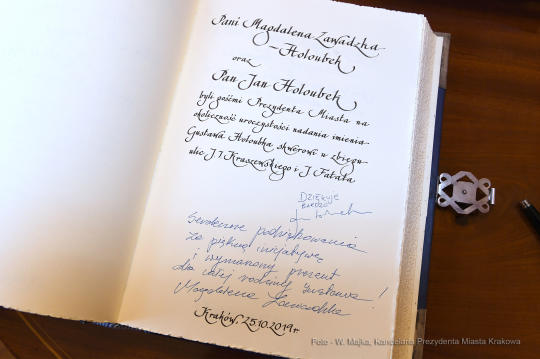 Pani Magdalena Zawadzka-
– Holoubek
oraz
Pan Jan Holoubek
byli gośćmi Prezydenta Miasta na
okoliczność uroczystości nadania imienia
Gustawa Holoubka skwerowi u zbiegu
ulic J. I. Kraszewskiego i J. Fałata
DZIĘKUJĘ
BARDZO
Serdeczne podziękowania
za piękną inicjatywę
i wymarzony prezent
dla całej rodziny Gustawa!
Magdalena Zawadzka
Kraków, 25.10.2019 r.
Foto - W. Majka, Kancelaria Prezydenta Miasta Krakowa